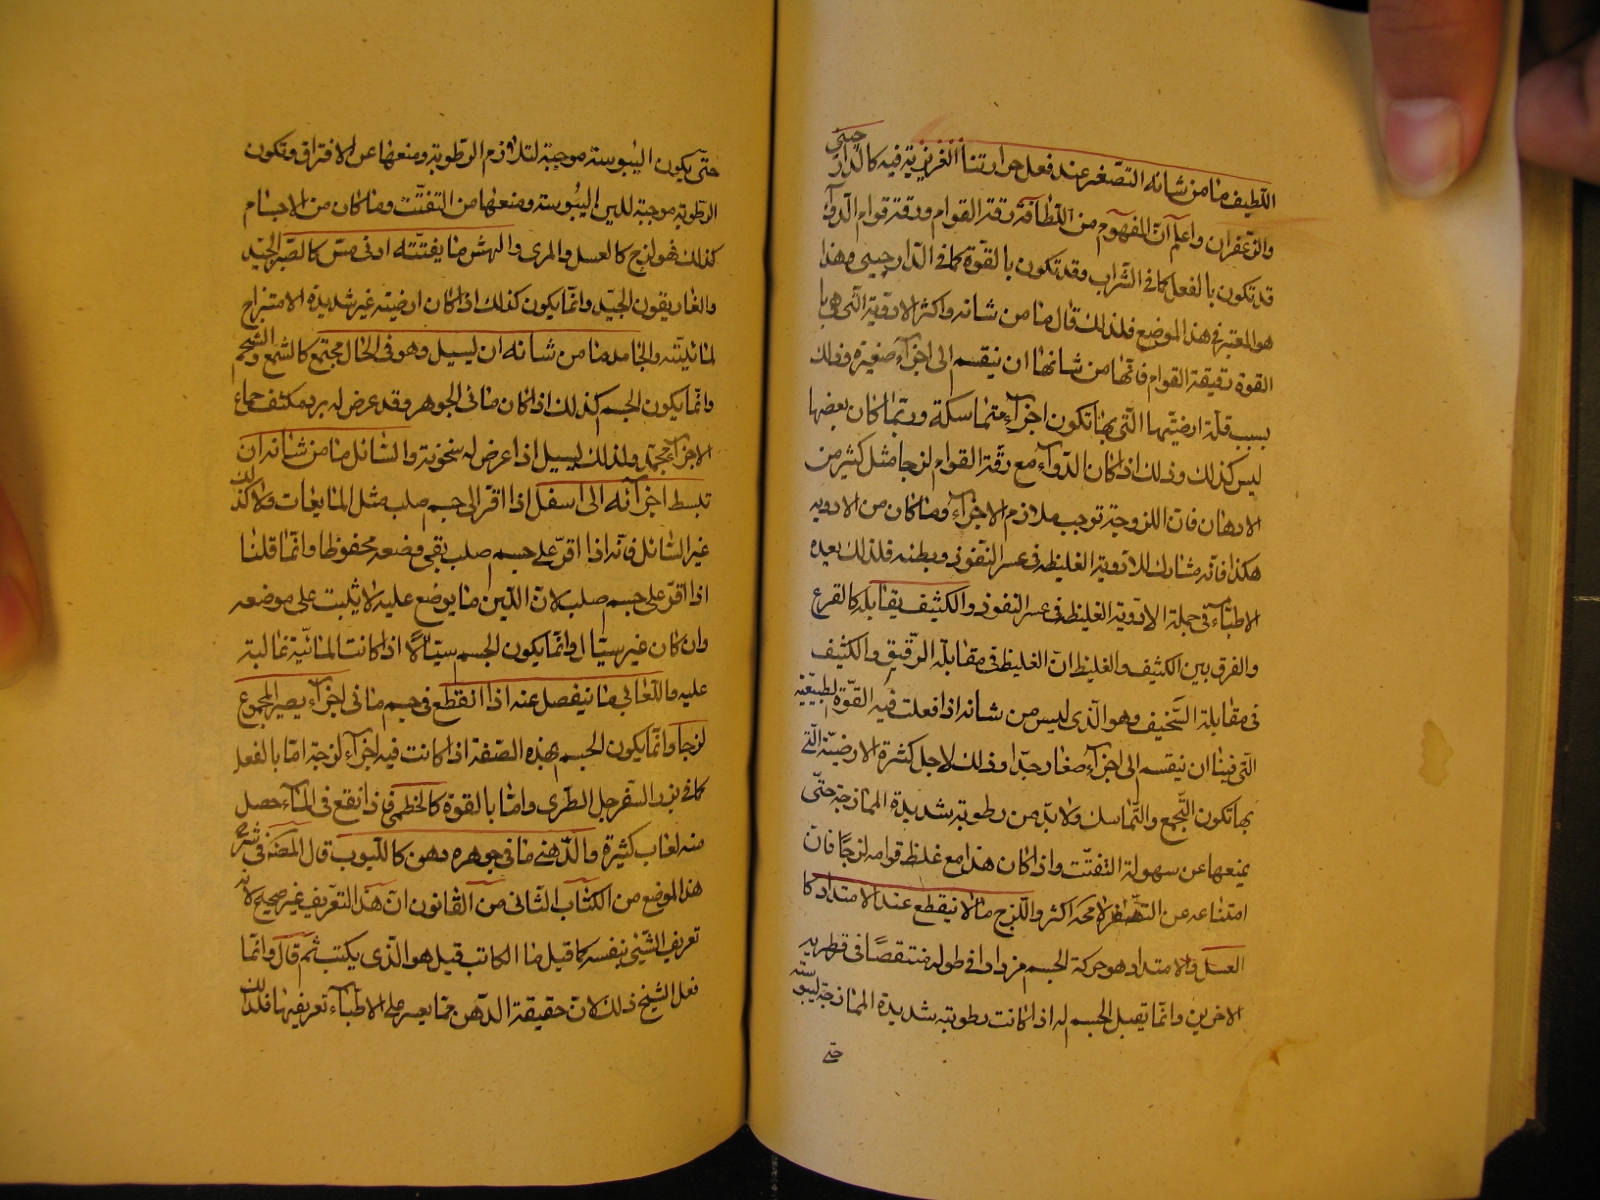 اللّطيف ما من شانه التصغر عند فعل حرارتنا الغريزية فيه كالدارصيني
والزعفران واعلم ان المفهوم من اللطافة رقة القوام ورقة قوام الدواء
قد تكون بالفعل كما في الشراب وقد تكون بالقوة كما في الدارصيني وهذا
هو المعتبر في هذا الموضع فلذلك قال ما من شانه واكثر الادوية التي هي با
القوة رقيقة القوام فانها من شانها ان ينقسم الى اجزآء صغيرة وذلك
بسبب قلة ارضيتها التي بها تكون اجزآء متماسكة وربما كان بعضها
ليس كذلك وذلك اذا كان الدوآء مع رقة القوام لزجا مثل كثير من
الادهان فان اللزوجة توجب تلازم الاجزآء وما كان من الادوية
هكذا فانه مشارك للادوية الغليظة في عسر النفوذ وبطئه فلذلك يعده
الاطبآء في جملة الادوية الغليظة في عسر النفوذ والكثيف يقابله كالقرع
والفرق بين الكثيف والغليظ ان الغليظ في مقابلة الرقيق والكثيف
في مقابلة السخيف وهو الذي ليس من شانه اذا فعلت فيه القوة الطبيعية
التي فينا ان ينقسم الى اجزآء صغار جدا وذلك لاجل كثرة الارضية التي
بها تكون التجمع والتماسك ولا بد من رطوبة شديدة الممازجة حتى
يمنعها عن سهولة التفتت واذا كان هذا مع غلظ قوامه لزجا فان
امتناعه عن التصغر لا محة اكثر واللزج ما لا ينقطع عند الامتداد كا
العسل والامتداد هو حركة الجسم مزدادا في طوله منتقصا في قطريه
الاخرين وانما يقبل الجسم له اذا كانت رطوبته شديدة الممازجة ليبوسته
حتى
حتى يكون اليبوسة موجبة لتلازم الرطوبة ومنعها عن الافتراق وتكون
الرطوبة موجبة للين اليبوسة ومنعها من التفتت وما كان من الاجسام
كذلك فهو لزج كالعسل والمرى والهش ما يفتته ادنى مس كالصبر الجيد
والغاريقون الجيد وانما يكون كذلك اذا كان ارضيته غير شديدة الامتزاج
لمائيته والجامد ما من شانه ان يسيل وهو في الحال مجتمع كالشمع والشحم
وانما يكون الجسم كذلك اذا كان مائي الجوهر وقد عرض له برد مكثف جماع
الاجزآء مجمد ولذلك يسيل اذا عرض له سخونة والسائل ما من شانه ان
تبسط اجزآئه الى اسفل اذا اقر الى جسم صلب مثل المايعات ولا كذلك
غير السائل فانه اذا اقر على جسم صلب بقي وضعه محفوظا وانما قلنا
اذا اقر على جسم صلب لان اللين ما يوضع عليه لا يثبت على موضعه
وان كان غير سيال وانما يكون الجسم سيالا اذا كانت المائية غالبة
عليه واللعابي ما ينفصل عنه اذا انقطع في جسم مائي اجزآء يصير المجموع
لزجا وانما يكون الجسم بهذه الصفة اذا كانت فيه اجزآء لزجة اما بالفعل
كما في بزر السفرجل الطري واما بالقوة كالخطمي فاذا نقع في المآء حصل
منه لعاب كثيرة والدهني ما في جوهره دهن كاللبوب قال المصنف في شرح
هذا الموضع من الكتاب الثاني من القانون ان هذا التعريف غير صحيح لانه
تعريف الشئ بنفسه كما قيل ما الكاتب قيل هو الذي يكتب ثم قال وانما
فعل الشيخ ذلك لان حقيقة الدهن مما يعسر على الاطبآء تعريفها فلذلك